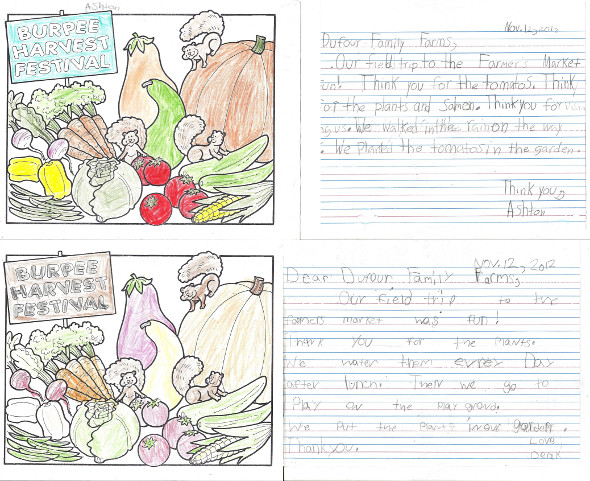 Ashton
BURPEE
HARVEST
FESTIVAL
Nov. 12, 2012
Dufour Family Farms,
Our field trip to the Farmer's Market
fun! Think you for the tomatos. Think
for the plants and Samon. Think you for
us. We walked in the rain on the way
. We Planted the tomatos in the garden.
Think you,
Ashton
BURPEE
HARVEST
FESTIVAL
Nov. 12, 2012
Dear Dufour Family Farms,
Our field trip to the
farmers market was fun!
Thank you for the Plants.
We water them evrey Day
after lunch. Then we go to
Play on the play grond.
We Put the Plants in our garden.
Thank you. Love
Derik